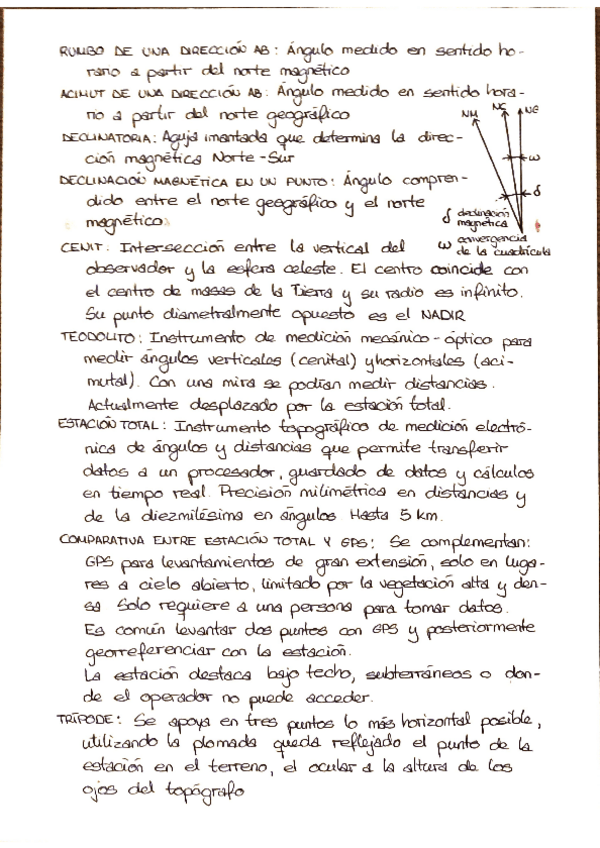 RUMBO DE UNA DIRECCIÓN AB: Ángulo medido en sentido ho-
rario a partir del norte magnético
ACIMUT DE UNA DIRECCIÓN AB: Ángulo medido en sentido hora-
rio a partir del norte geográfico
DECLINATORIA: Aguja imantada que determina la direc-
ción magnética Norte-Sur
DECLINACIÓN MAGNÉTICA EN UN PUNTO: Ángulo compren-
dido entre el norte geográfico y el norte
magnético.
NM NC NG
ω
δ
δ declinación
magnética
ω convergencia
de la cuadrícula
CENIT: Intersección entre la vertical del
observador y la esfera celeste. El centro coincide con
el centro de masas de la Tierra y su radio es infinito.
Su punto diametralmente opuesto es el NADIR
TEODOLITO: Instrumento de medición mecánico-óptico para
medir ángulos verticales (cenital) y horizontales (aci-
mutal). Con una mira se podían medir distancias.
Actualmente desplazado por la estación total.
ESTACIÓN TOTAL: Instrumento topográfico de medición electró-
nica de ángulos y distancias que permite transferir
datos a un procesador, guardado de datos y cálculos
en tiempo real. Precisión milimétrica en distancias y
de la diezmilésima en ángulos. Hasta 5 km.
COMPARATIVA ENTRE ESTACIÓN TOTAL Y GPS: Se complementan:
GPS para levantamientos de gran extensión, solo en luga-
res a cielo abierto, limitado por la vegetación alta y den-
sa. Solo requiere a una persona para tomar datos.
Es común levantar dos puntos con GPS y posteriormente
georreferenciar con la estación.
La estación destaca bajo techo, subterráneos o don-
de el operador no puede acceder.
TRÍPODE: Se apoya en tres puntos lo más horizontal posible,
utilizando la plomada queda reflejado el punto de la
estación en el terreno, el ocular a la altura de los
ojos del topógrafo